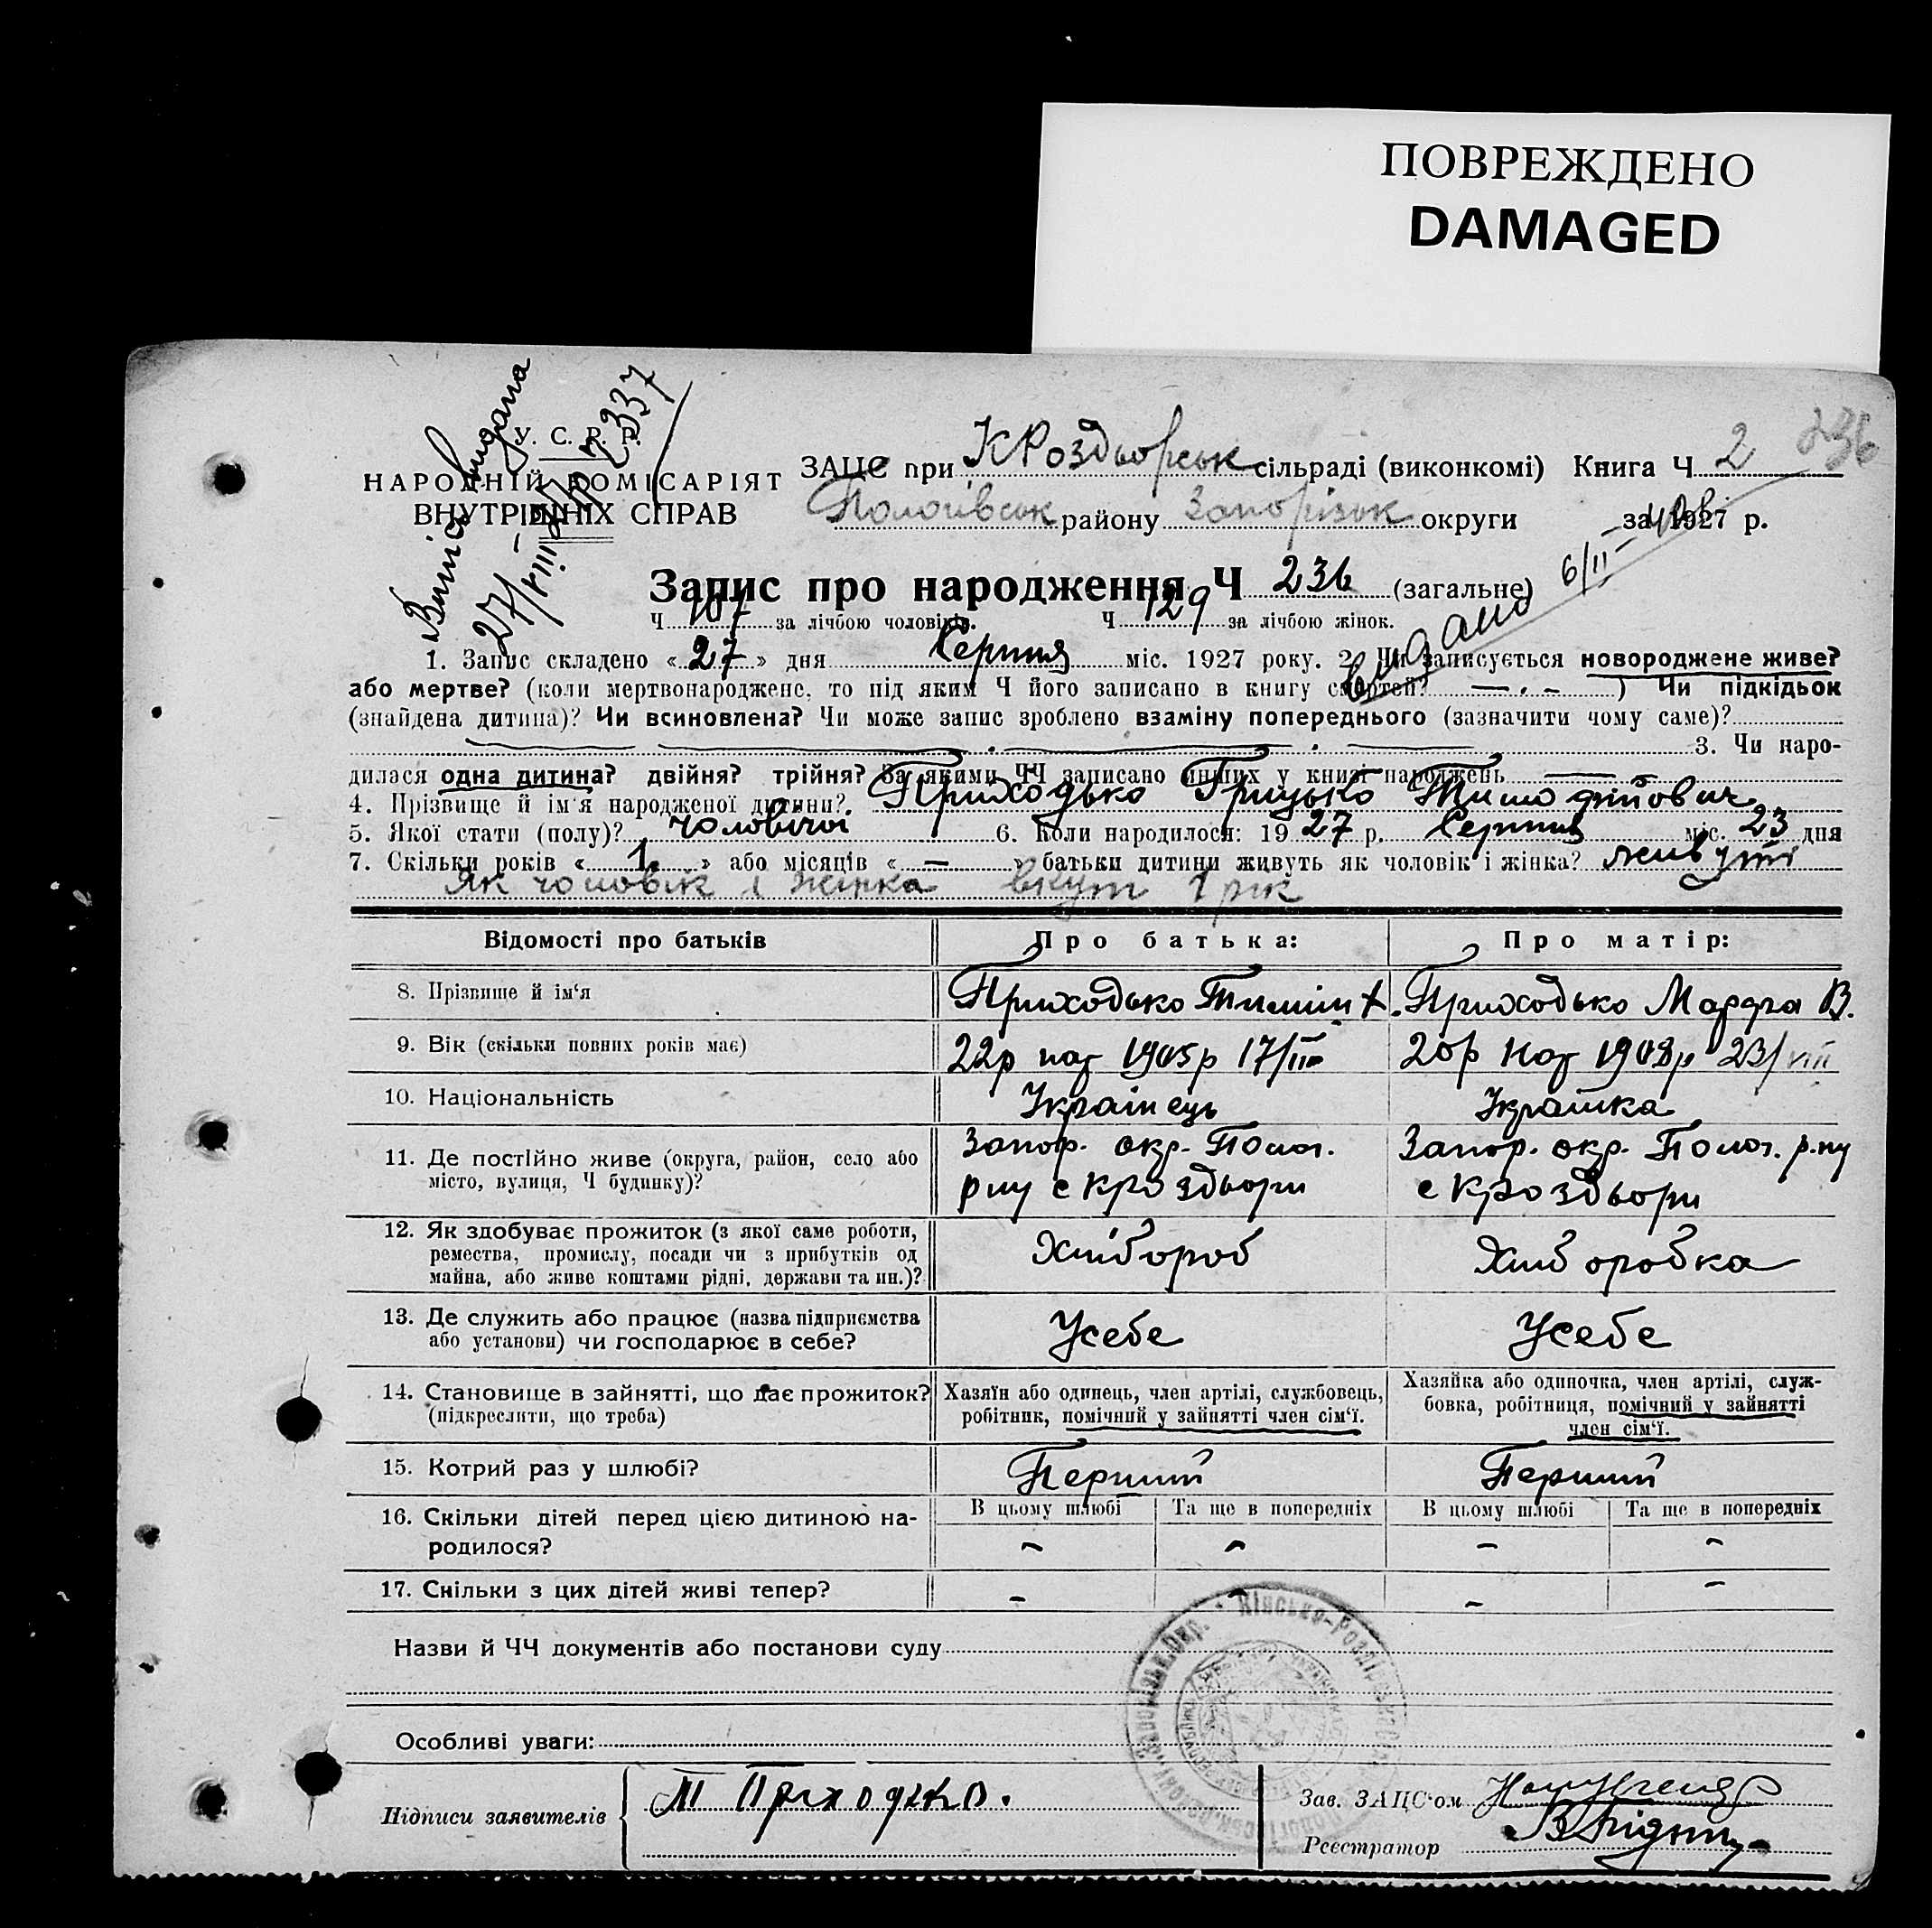 ПОВРЕЖДЕНО
DAMAGED
236
Випись видана
27/VIII 2337
У. С. Р. Р.
НАРОДНІЙ КОМІСАРІЯТ
ВНУТРІШНІХ СПРАВ
ЗАЦС при КРоздьорськ сільраді (виконкомі) Книга Ч 2
Пологівськ району Запорізьк округи за 1927 р.
Запис про народження Ч 236 (загальне)
видано 6/II-
Ч 107 за лічбою чоловіків. Ч 129 за лічбою жінок.
1. Запис складено « 27 » дня Серпня міс. 1927 року. 2. Чи записується новороджене живе?
або мертве? (коли мертвонароджене, то під яким Ч його записано в книгу смертей? — . – ) Чи підкідьок
(знайдена дитина)? Чи всиновлена? Чи може запис зроблено взаміну попереднього (зазначити чому саме)?
3. Чи наро-
дилася одна дитина? двійня? трійня? За якими ЧЧ записано инших у книзі народжень —
4. Прізвище й ім'я народженої дитини? Приходько Грицько Тимофійович
5. Якої стати (полу)? чоловічої 6. Коли народилося: 1927 р. Серпня міс. 23 дня
7. Скільки років « 1 » або місяців « – » батьки дитини живуть як чоловік і жінка? живуть
Як чоловік і жінка вкупі 1 рік
Відомості про батьків Про батька: Про матір:
8. Прізвище й ім'я Приходько Тиміш Х. Приходько Марфа В.
9. Вік (скільки повних років має) 22р нар 1905р 17/III 20р нар 1908р 23/VIII
10. Національність Українець Українка
11. Де постійно живе (округа, район, село або місто, вулиця, Ч будинку)?
Запор. окр. Полог. рну с Кроздьори
Запор. окр. Полог. р-ну с Кроздьори
12. Як здобуває прожиток (з якої саме роботи,
ремества, промислу, посади чи з прибутків од
майна, або живе коштами рідні, держави та ин.)?
Хлібороб Хліборобка
13. Де служить або працює (назва підприємства
або установи) чи господарює в себе?
Усебе Усебе
14. Становище в зайнятті, що дає прожиток?
(підкреслити, що треба)
Хазяїн або одинець, член артілі, службовець,
робітник, помічний у зайнятті член сім'ї.
Хазяйка або одиночка, член артілі, служ-
бовка, робітниця, помічний у зайнятті
член сім'ї.
15. Котрий раз у шлюбі? Перший Перший
В цьому шлюбі Та ще в попередніх В цьому шлюбі Та ще в попередніх
16. Скільки дітей перед цією дитиною на-
родилося? – – – –
17. Скільки з цих дітей живі тепер? – – –
Назви й ЧЧ документів або постанови суду
Особливі уваги:
Підписи заявителів Т Приходько.
Зав. ЗАЦС'ом
Реєстратор